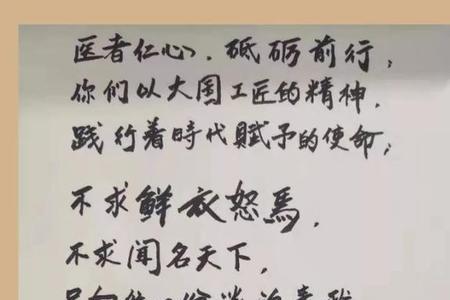 医者仁心、砥砺前行,
你们以大国工匠的精神,
践行着時代賦予的使命;
不求鲜衣怒馬,
不求闻名天下,